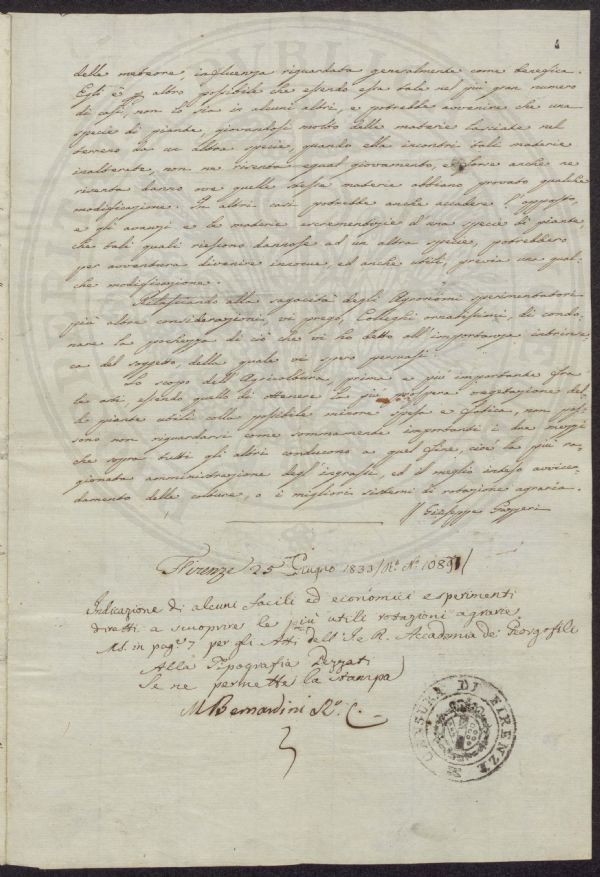 delle meteore, influenza riguardata generalmente come benefica.
Egli è per altro possibile che essendo essa tale nel più gran numero
di casi, non lo sia in alcuni altri, e potrebbe avvenire che una
specie di piante, giovandosi molto delle materie lasciate nel
terreno da un altra specie, quando ella incontri tali materie
inalterate, non ne risenta egual giovamento, e forse anche ne
risenta danno ove quelle stesse materie abbiano provato qualche
modificazione. In altri casi potrebbe anche accadere l'opposto,
e gli avanzi e le materie escrementizie d'una specie di piante,
che tali quali riescono dannose ad un altra specie, potrebbero
per avventura divenire innocue, ed anche utili, previa una qual-
che modificazione.
alla sagacità degli Agronomi sperimentatori
più altre considerazioni, vi prego, Colleghi ornatissimi, di condo-
nare la pochezza di ciò che vi ho detto all'importanza intrinse-
ca del soggetto, della quale vi spero persuasi.
Lo scopo dell'Agricoltura, prima e più importante fra
le arti, essendo quello di ottenere la più prospera vegetazione del-
le piante utili colla possibile minore spesa e fatica, non pos-
sono non riguardarsi come sommamente importanti i due mezzi
che sopra tutti gli altri conducono a quel fine, cioè la più ra-
gionata amministrazione degl'ingrassi, ed il meglio inteso avvicen-
damento delle colture, o i migliori sistemi di rotazione agraria.
Giuseppe Gazzeri
Firenze 25 Giugno 1833 / Rº Nº 1089 /
Indicazione di alcuni facili ed economici esperimenti
diretti a scuoprire le più utili rotazioni agrarie
MS. in pag.e 7 per gli Atti dell'I. e R. Accademia de' Georgofili
Alla Tipografia Pezzati
Se ne permette la stampa
M Bernardini Rº C.
CENSURA DI FIRENZE